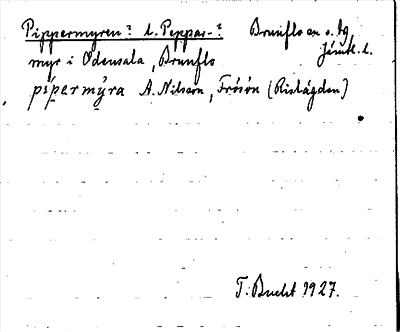 Pippermyren? l. Peppar-? Brunflo sn o. tg
Jämtl. l.
myr i Odensala, Brunflo
pìpermỳra A. Nilsson, Frösön (Ristägden)
T. Bucht 1927.